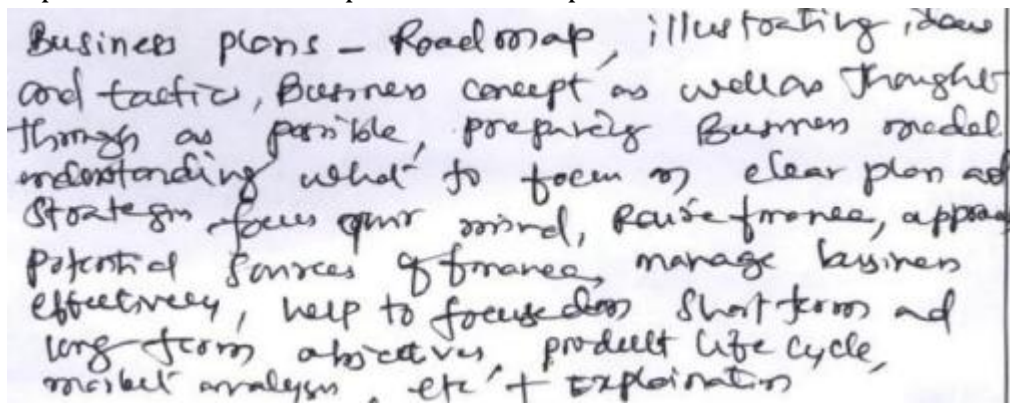 Business plans - Road map, illustrating ideas
and tactics, Business concept as well as thought
through as possible, preparing Business model
understanding what to focus on clear plan and
Strategies focus your mind, Raise finance, approach
Potential Sources of finance, manage business
effectively, help to focused on Short term and
long term objectives, product life cycle,
market analysis, etc + Explaination